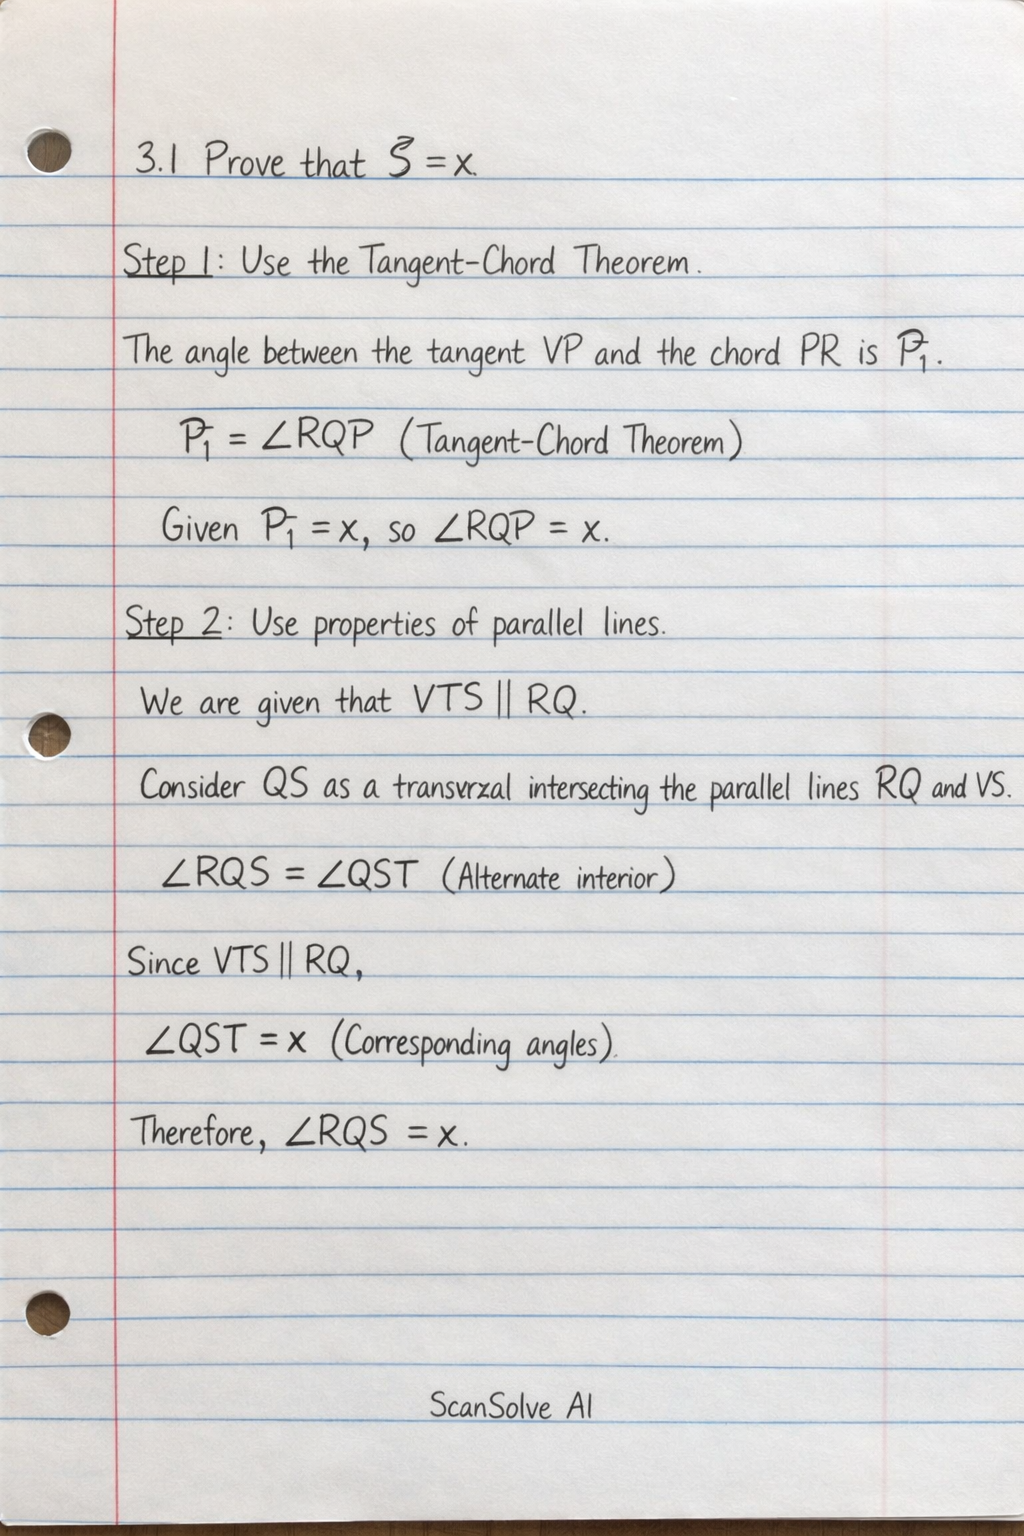 3.1 Prove that Ŝ = x.
Step 1: Use the Tangent-Chord Theorem.
The angle between the tangent VP and the chord PR is P̂₁.
P̂₁ = ∠RQP (Tangent-Chord Theorem)
Given P̂₁ = x, so ∠RQP = x.
Step 2: Use properties of parallel lines.
We are given that VTS || RQ.
Consider QS as a transvrzal intersecting the parallel lines RQ and VS.
∠RQS = ∠QST (Alternate interior)
Since VTS || RQ,
∠QST = x (Corresponding angles).
Therefore, ∠RQS = x.
ScanSolve AI